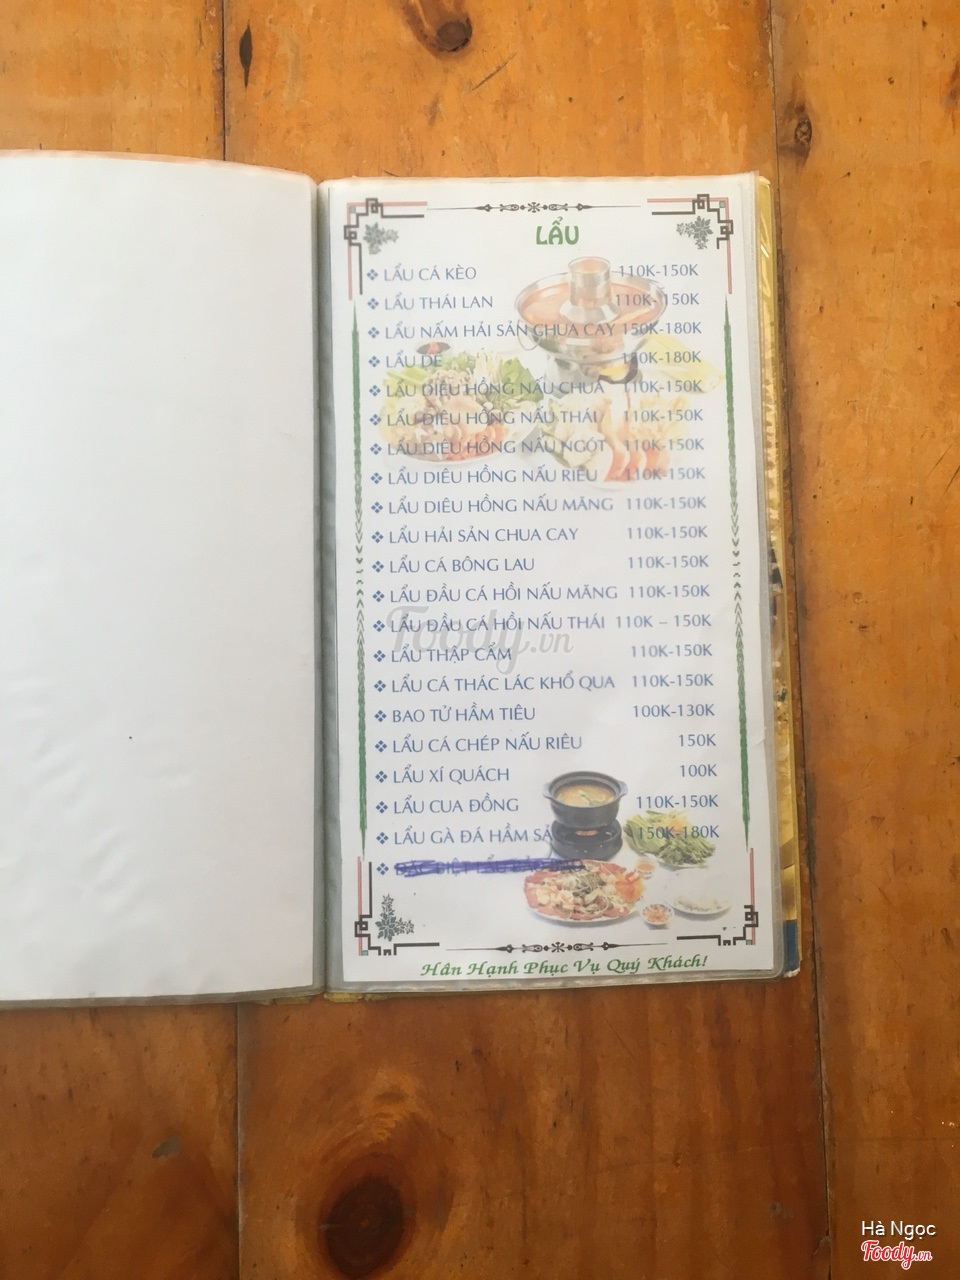 LẨU
❖ LẨU CÁ KÈO 110K-150K
❖ LẨU THÁI LAN 110K-150K
❖ LẨU NẤM HẢI SẢN CHUA CAY 150K-180K
❖ LẨU DÊ 130K-180K
❖ LẨU DIÊU HỒNG NẤU CHUA 110K-150K
❖ LẨU DIÊU HỒNG NẤU THÁI 110K-150K
❖ LẨU DIÊU HỒNG NẤU NGÓT 110K-150K
❖ LẨU DIÊU HỒNG NẤU RIÊU 110K-150K
❖ LẨU DIÊU HỒNG NẤU MĂNG 110K-150K
❖ LẨU HẢI SẢN CHUA CAY 110K-150K
❖ LẨU CÁ BÔNG LAU 110K-150K
❖ LẨU ĐẦU CÁ HỒI NẤU MĂNG 110K-150K
❖ LẨU ĐẦU CÁ HỒI NẤU THÁI 110K – 150K
❖ LẨU THẬP CẨM 110K-150K
❖ LẨU CÁ THÁC LÁC KHỔ QUA 110K-150K
❖ BAO TỬ HẦM TIÊU 100K-130K
❖ LẨU CÁ CHÉP NẤU RIÊU 150K
❖ LẨU XÍ QUÁCH 100K
❖ LẨU CUA ĐỒNG 110K-150K
❖ LẨU GÀ ĐÁ HẦM SẢ 150K-180K
❖ ĐẶC BIỆT LẨU
Hân Hạnh Phục Vụ Quý Khách!
Foody.vn
Hà Ngọc
Foody.vn